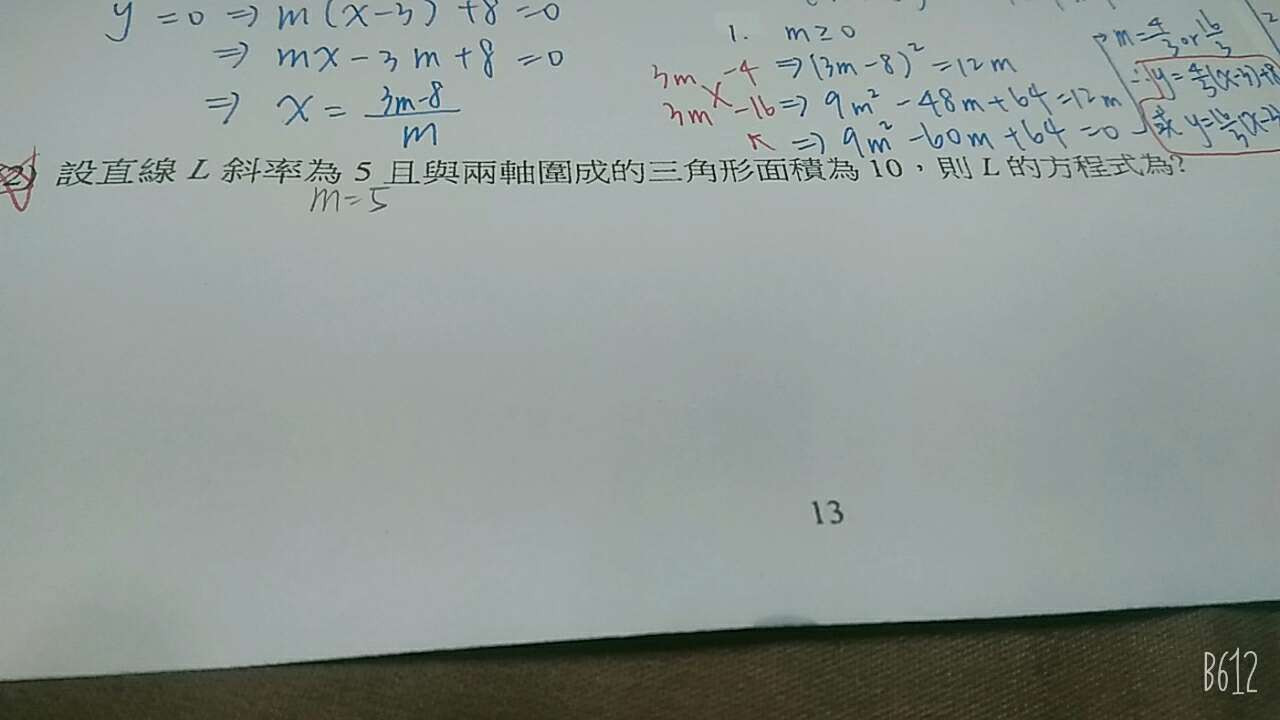 y = 0 ⇒ m(x-3) + 8 = 0
⇒ mx - 3m + 8 = 0
⇒ x = (3m-8)/m
1. m ≥ 0
3m -4 ⇒ (3m-8)² = 12m
3m -16 ⇒ 9m² - 48m + 64 = 12m
⇒ 9m² - 60m + 64 = 0
m = 4/3 or 16/3
∴ y = 4/3(x-3)+8
或 y = 16/3(x-3
2
設直線 L 斜率為 5 且與兩軸圍成的三角形面積為 10，則 L 的方程式為?
m=5
13
B612